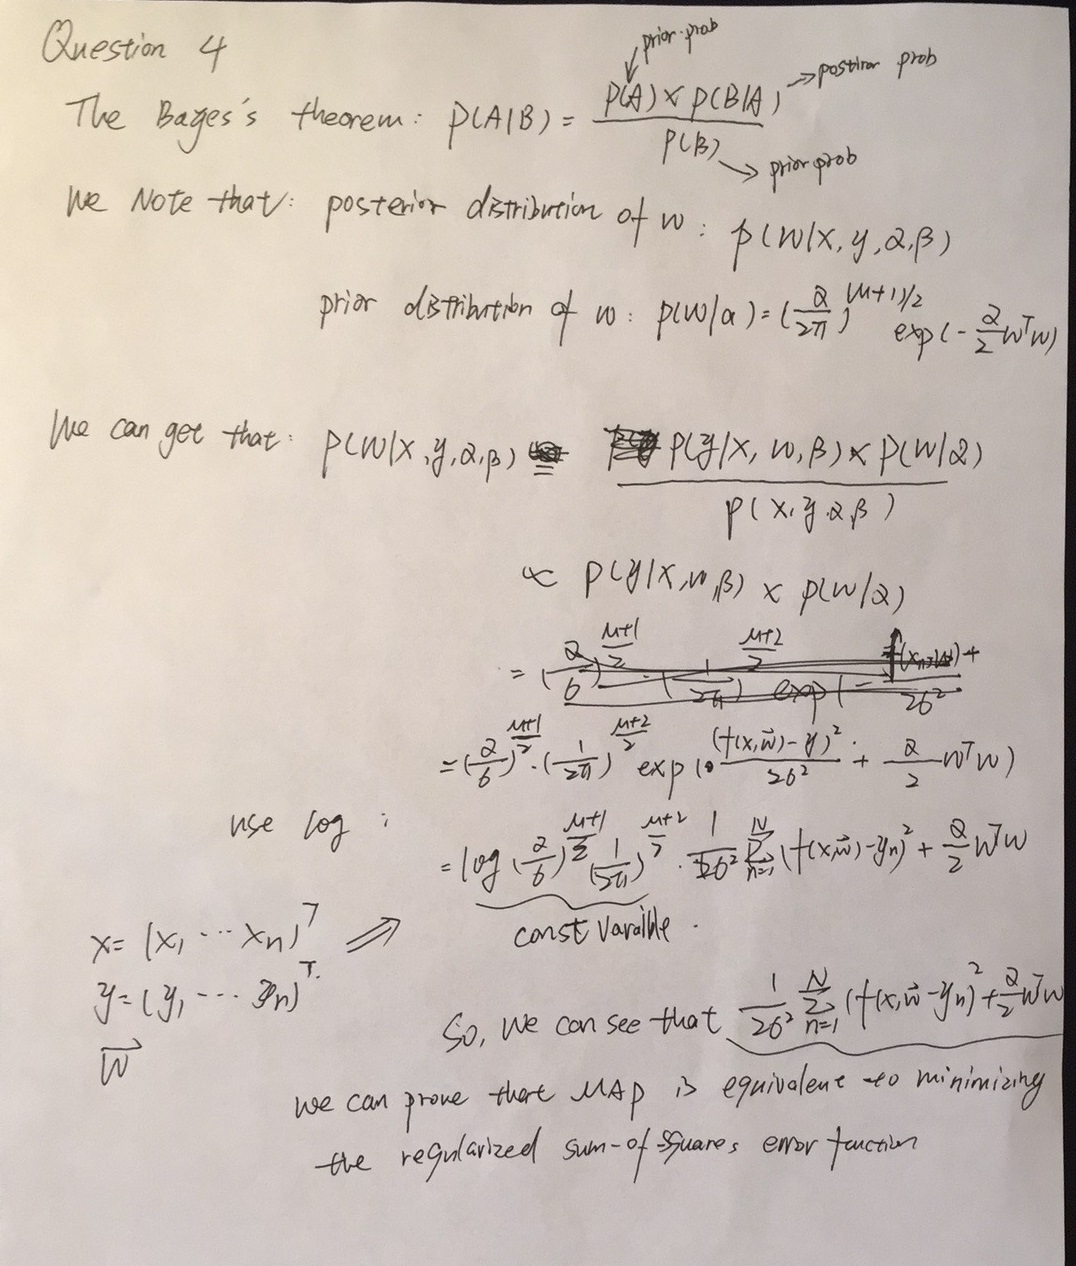 Question 4
prior prob
The Bages's theorem: P(A|B) = P(A) × P(B|A) / P(B)
→ postiror prob
→ prior prob
We Note that: posterior distribution of w: p(W|X, y, α, β)
prior distribution of w: p(W|α) = (α/2π)^(M+1)/2 exp(-α/2 WᵀW)
We can get that: P(W|X, y, α, β) = P(y|X, w, β) × P(W|α) / P(X, y, α, β)
∝ P(y|X, w, β) × p(W|α)
= (α/6)^(M+1)/2 · (1/2π)^(M+2)/2 exp( (f(x,w⃗)-y)²/2б² + α/2 WᵀW)
use log :
= log (α/6)^(M+1)/2 (1/2π)^(M+2)/2 · 1/2б² Σ_{n=1}^{N} (f(x,w⃗)-yn)² + α/2 WᵀW
const varaible .
x = (x₁ ··· xn)ᵀ ⇒
y = (y₁ ··· yn)ᵀ.
W⃗
So, we can see that 1/2б² Σ_{n=1}^{N} (f(x,w⃗ - yn)² + α/2 WᵀW
we can prove that MAP is equivalent to minimizing
the regularized sum-of-squares error function